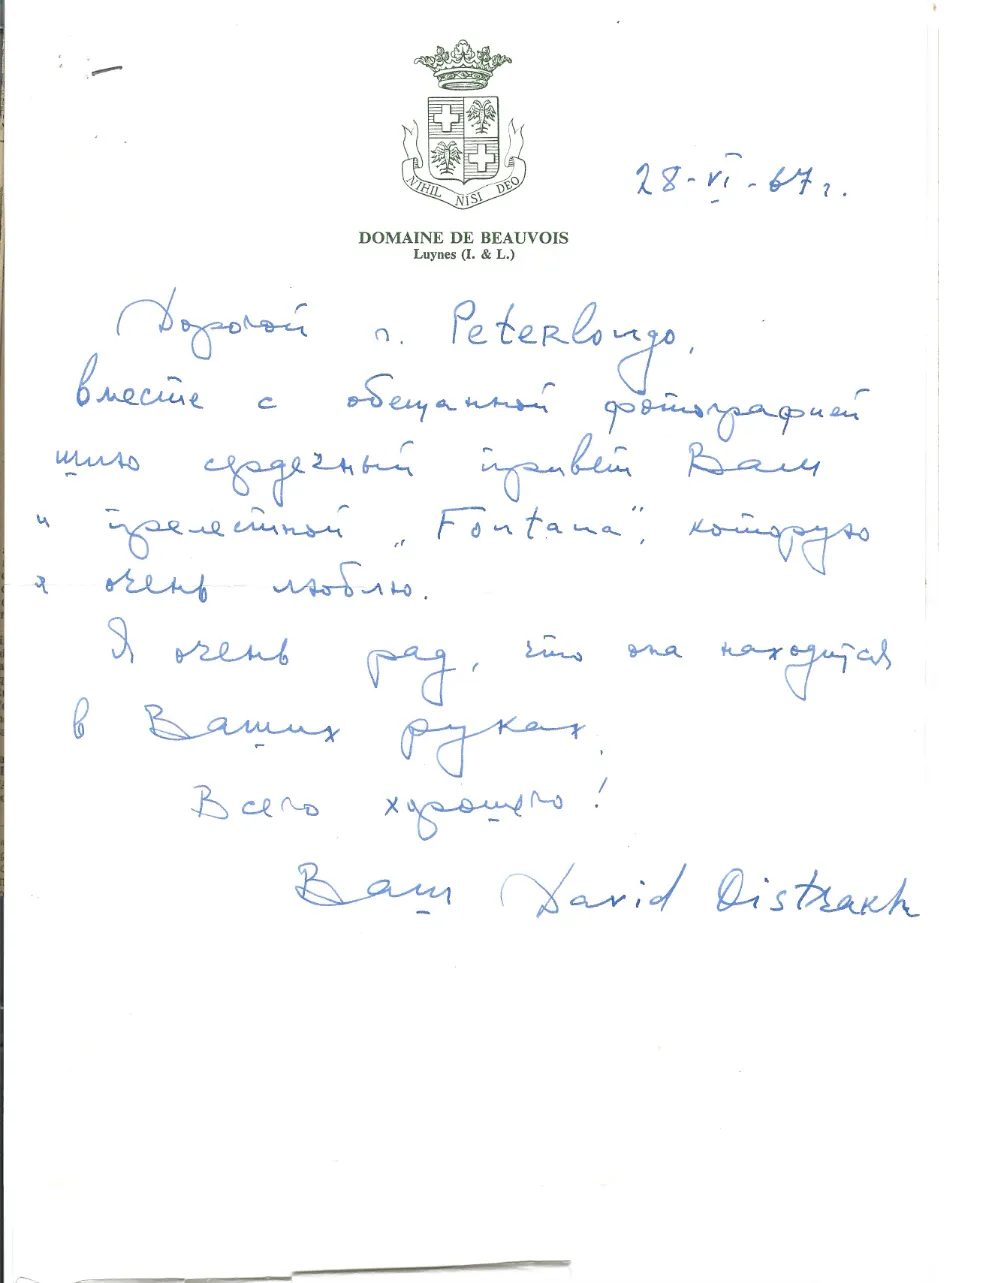 NIHIL NISI DEO
DOMAINE DE BEAUVOIS
Luynes (I. & L.)
28-VI-67 г.
Дорогой г. Peterlongo,
вместе с обещанной фотографией
шлю сердечный привет Вам
и прелестной „Fontana”, которую
я очень люблю.
Я очень рад, что она находится
в Ваших руках.
Всего хорошего!
Ваш David Oistrakh